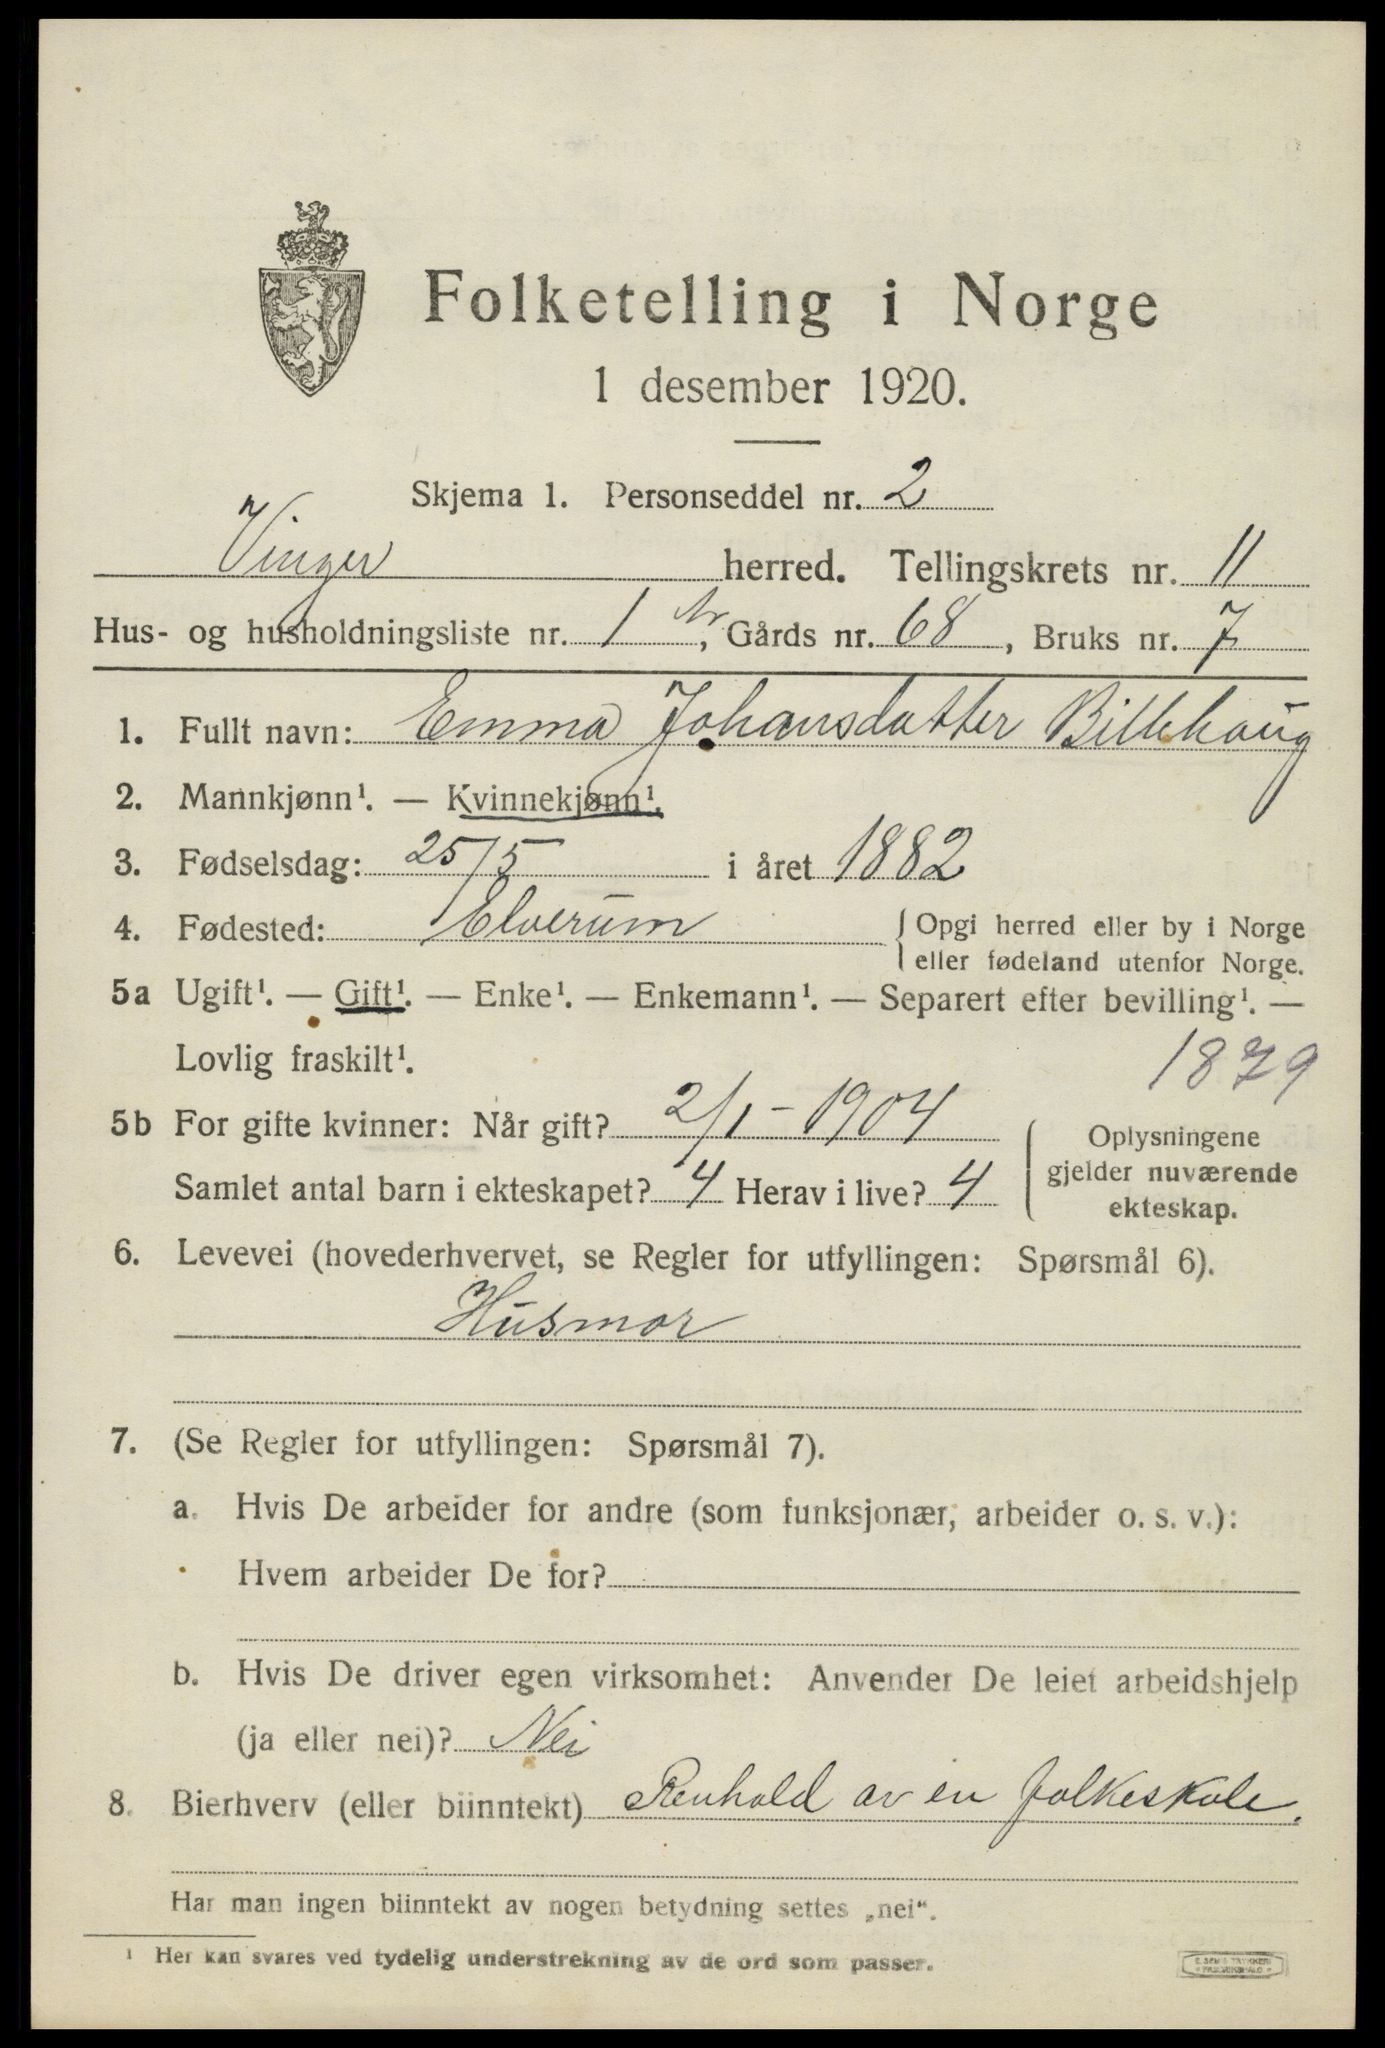 Folketelling i Norge
1 desember 1920.
Skjema 1. Personseddel nr. 2
Vinger herred. Tellingskrets nr. 11
Hus- og husholdningsliste nr. 1, Gårds nr. 68, Bruks nr. 7
1. Fullt navn: Emma Johansdatter Billehaug
2. Mannkjønn¹. — Kvinnekjønn¹.
3. Fødselsdag: 25/5 i året 1882
4. Fødested: Elverum { Opgi herred eller by i Norge
eller fødeland utenfor Norge.
5a Ugift¹. — Gift¹. — Enke¹. — Enkemann¹. — Separert efter bevilling¹. —
Lovlig fraskilt¹. 1879
5b For gifte kvinner: Når gift? 2/1 - 1904
Samlet antal barn i ekteskapet? 4 Herav i live? 4
{ Oplysningene
gjelder nuværende
ekteskap.
6. Levevei (hovederhvervet, se Regler for utfyllingen: Spørsmål 6).
Husmor
7. (Se Regler for utfyllingen: Spørsmål 7).
a. Hvis De arbeider for andre (som funksjonær, arbeider o. s. v.):
Hvem arbeider De for?
b. Hvis De driver egen virksomhet: Anvender De leiet arbeidshjelp
(ja eller nei)? Nei
8. Bierhverv (eller biinntekt) Renhold av en folkeskole.
Har man ingen biinntekt av nogen betydning settes „nei“.
¹ Her kan svares ved tydelig understrekning av de ord som passer.